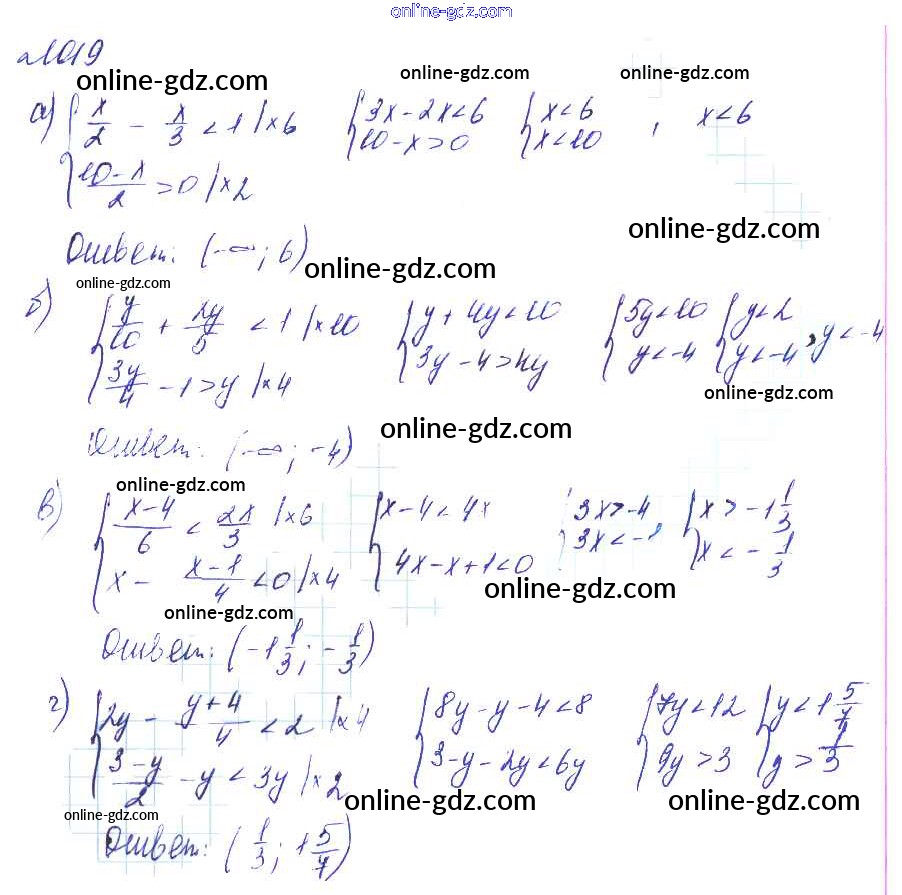 online-gdz.com
№1019
online-gdz.com online-gdz.com online-gdz.com
а) { x/2 - x/3 < 1 | ×6 { 3x - 2x < 6 { x < 6 , x < 6
{ (10-x)/2 > 0 | ×2 { 10 - x > 0 { x < 10
online-gdz.com
Ответ: (-∞; 6) online-gdz.com
online-gdz.com
б) { y/10 + 2y/5 < 1 | ×10 { y + 4y < 10 { 5y < 10 { y < 2 , y < -4
{ 3y/4 - 1 > y | ×4 { 3y - 4 > 4y { y < -4 { y < -4
online-gdz.com
online-gdz.com
Ответ: (-∞; -4)
online-gdz.com
в) { (x-4)/6 < 2x/3 | ×6 { x - 4 < 4x { 3x > -4 { x > -1 1/3
{ x - (x-1)/4 < 0 | ×4 { 4x - x + 1 < 0 { 3x < -1 { x < -1/3
online-gdz.com
online-gdz.com
Ответ: (-1 1/3; -1/3)
г) { 2y - (y+4)/4 < 2 | ×4 { 8y - y - 4 < 8 { 7y < 12 { y < 1 5/7
{ (3-y)/2 - y < 3y | ×2 { 3 - y - 2y < 6y { 9y > 3 { y > 1/3
online-gdz.com online-gdz.com
online-gdz.com
Ответ: (1/3; 1 5/7)